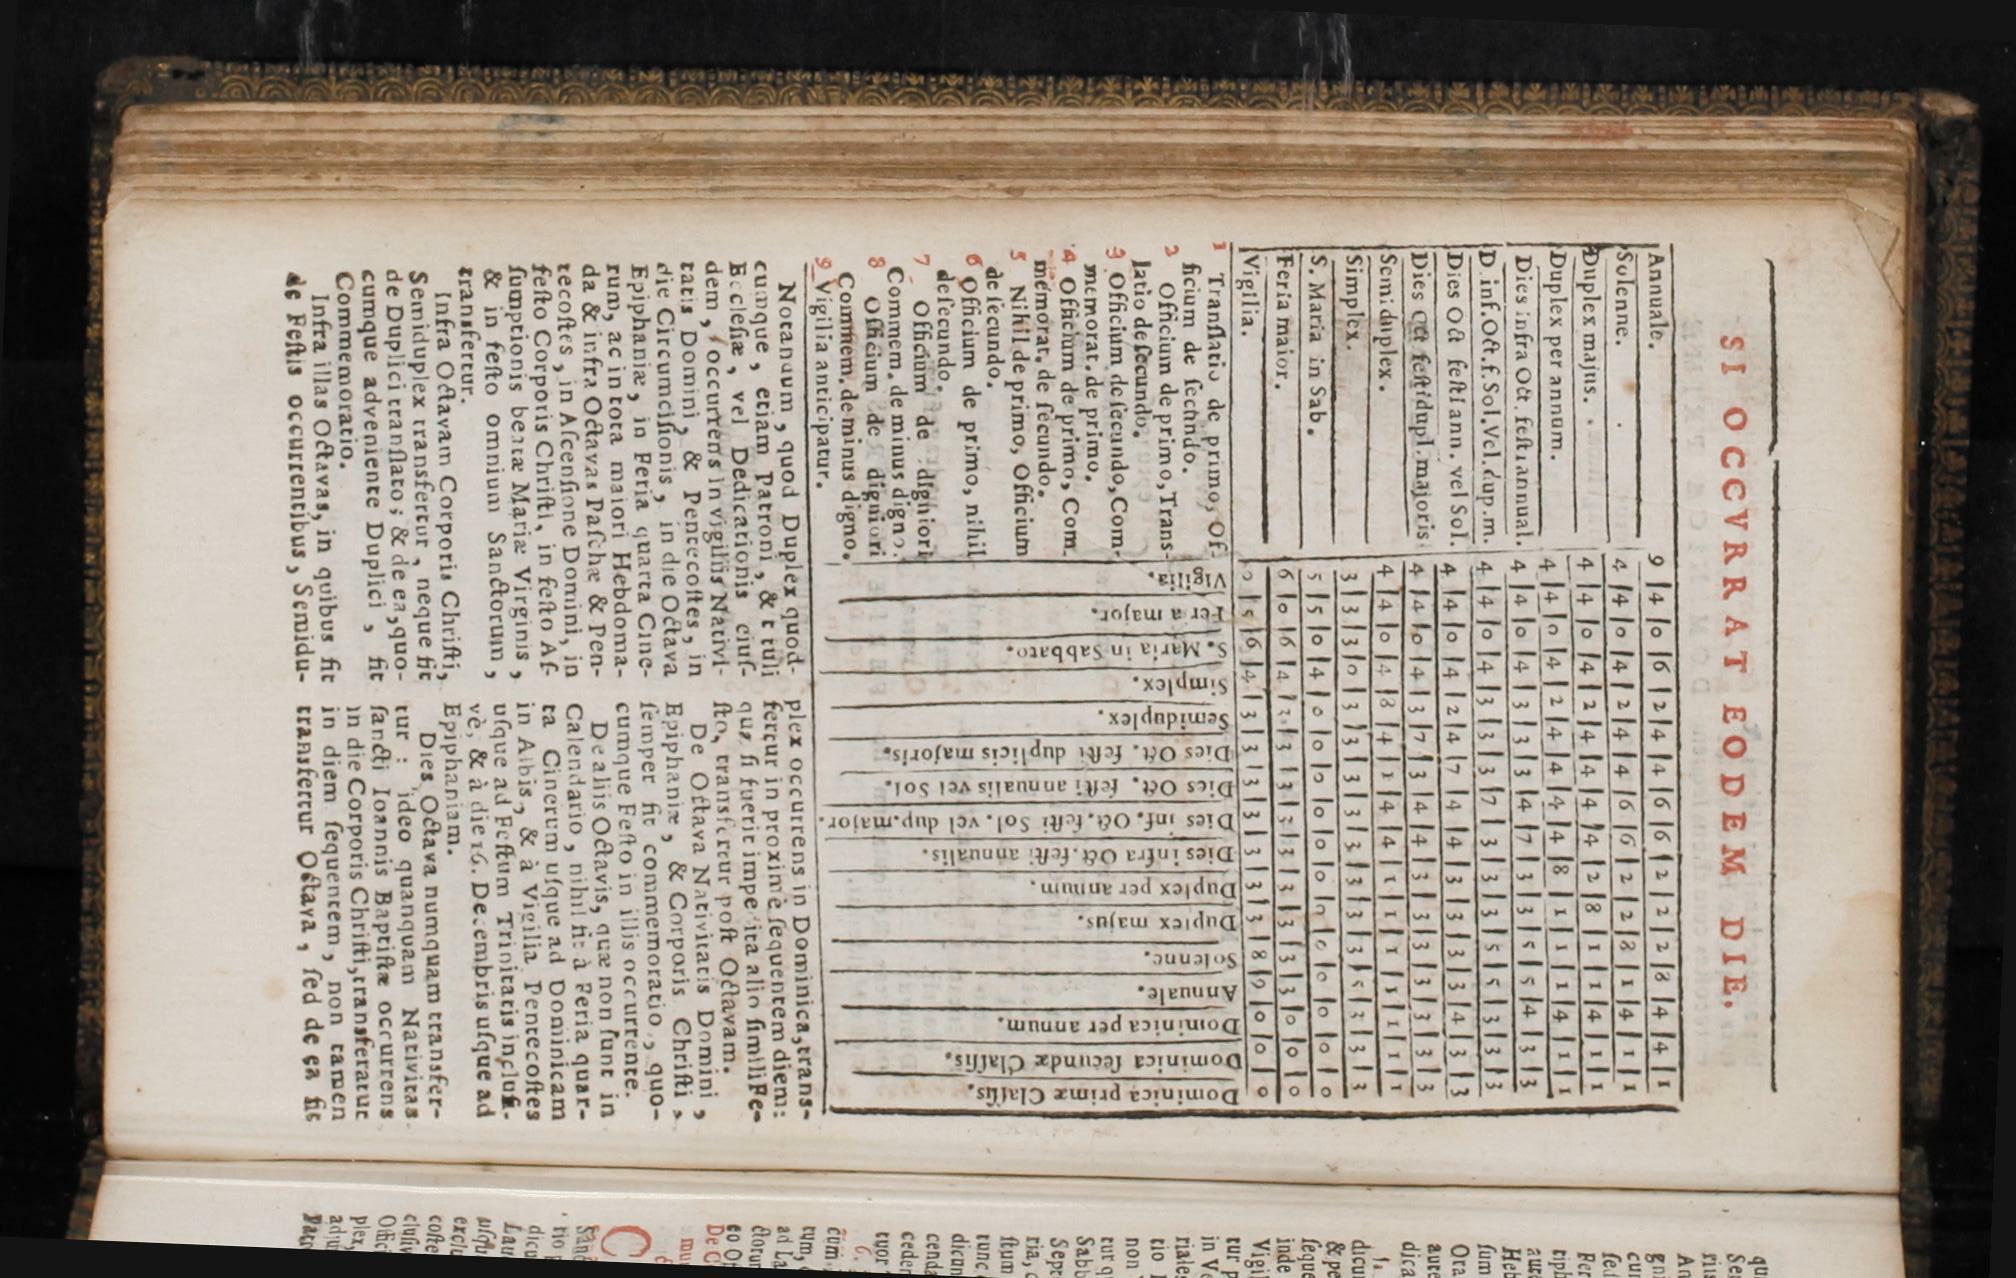 SI OCCVRRAT EODEM DIE.
Annuale. 9 | 4 | 0 | 6 | 2 | 4 | 4 | 6 | 6 | 2 | 2 | 2 | 8 | 4 | 4 | 1
Solenne. 4 | 4 | 0 | 4 | 2 | 4 | 4 | 6 | 6 | 2 | 2 | 8 | 1 | 4 | 1 | 1
Duplex majus. 4 | 4 | 0 | 4 | 2 | 4 | 4 | 4 | 4 | 2 | 8 | 1 | 1 | 4 | 1 | 1
Duplex per annum. 4 | 4 | 0 | 4 | 2 | 4 | 4 | 4 | 4 | 8 | 1 | 1 | 1 | 4 | 1 | 1
Dies infra Oct. festi annual. 4 | 4 | 0 | 4 | 3 | 3 | 3 | 4 | 7 | 3 | 3 | 5 | 5 | 4 | 3 | 3
D. inf. Oct. f. Sol. Vel. dup. m. 4 | 4 | 0 | 4 | 3 | 3 | 3 | 7 | 3 | 3 | 3 | 5 | 5 | 3 | 3 | 3
Dies Oct festi ann. vel Sol. 4 | 4 | 0 | 4 | 2 | 4 | 7 | 4 | 4 | 3 | 3 | 3 | 3 | 4 | 3 | 3
Dies oct festi dupl. majoris 4 | 4 | 0 | 4 | 3 | 7 | 3 | 4 | 4 | 3 | 3 | 3 | 3 | 3 | 3 | 3
Semiduplex. 4 | 4 | 0 | 4 | 8 | 4 | 1 | 4 | 4 | 1 | 1 | 1 | 1 | 1 | 1 | 1
Simplex. 3 | 3 | 3 | 0 | 3 | 3 | 3 | 3 | 3 | 3 | 3 | 3 | 5 | 3 | 3 | 3
S. Maria in Sab. 5 | 5 | 0 | 4 | 0 | 0 | 0 | 0 | 0 | 0 | 0 | 0 | 0 | 0 | 0 | 0
Feria maior. 6 | 0 | 6 | 4 | 3 | 3 | 3 | 3 | 3 | 3 | 3 | 3 | 3 | 0 | 0 | 0
Vigilia. 5 | 6 | 4 | 3 | 3 | 3 | 3 | 3 | 3 | 3 | 8 | 9 | 0 | 0 | 0
Vigilia.
Feria major.
S. Maria in Sabbato.
Simplex.
Semiduplex.
Dies Oct. festi duplicis majoris.
Dies Oct. festi annualis vel Sol.
Dies inf. Oct. festi Sol. vel dup. major.
Dies infra Oct. festi annualis.
Duplex per annum.
Duplex majus.
Solenne.
Annuale.
Dominica per annum.
Dominica secundæ Classis.
Dominica primæ Classis.
1 Translatio de primo, Of-
ficium de secundo.
2 Officium de primo, Trans-
latio de secundo.
3 Officium de secundo, Com-
memorat. de primo.
4 Officium de primo, Com.
memorat. de secundo.
5 Nihil de primo, Officium
de secundo.
6 Officium de primo, nihil
de secundo.
7 Officium de digniori
Commem. de minus digno.
8 Officium de digniori
Commem. de minus digno.
9 Vigilia anticipatur.
Notandum, quod Duplex quod-
cumque, etiam Patroni, & tituli
Ecclesiæ, vel Dedicationis eius-
dem, occurrens in vigiliis Nativi-
tatis Domini, & Pentecostes, in
die Circumcisionis, in die Octava
Epiphaniæ, in Feria quarta Cine-
rum, ac in tota maiori Hebdoma-
da & infra Octavas Paschæ & Pen-
tecostes, in Ascensione Domini, in
festo Corporis Christi, in festo As-
sumptionis beatæ Mariæ Virginis,
& in festo omnium Sanctorum,
transfertur.
Infra Octavam Corporis Christi,
Semiduplex transfertur, neque fit
de Duplici translato; & de ea, quo-
cumque adveniente Duplici, fit
Commemoratio.
Infra illas Octavas, in quibus fit
de Festis occurrentibus, Semidu-
plex occurrens in Dominica, trans-
fertur in proximè sequentem diem:
quæ si fuerit impedita alio simili Fe-
sto, transfertur post Octavam.
De Octava Nativitatis Domini,
Epiphaniæ, & Corporis Christi,
semper fit commemoratio, quo-
cumque Festo in illis occurrente.
De aliis Octavis, quæ non sunt in
Calendario, nihil fit à Feria quar-
ta Cinerum usque ad Dominicam
in Albis, & à Vigilia Pentecostes
usque ad Festum Trinitatis inclusi-
vè, & à die 16. Decembris usque ad
Epiphaniam.
Dies Octava numquam transfer-
tur: ideo quanquam Nativitas
sancti Ioannis Baptistæ occurrens
in die Corporis Christi, transferatur
in diem sequentem, non tamen
transfertur Octava, sed de ea fit